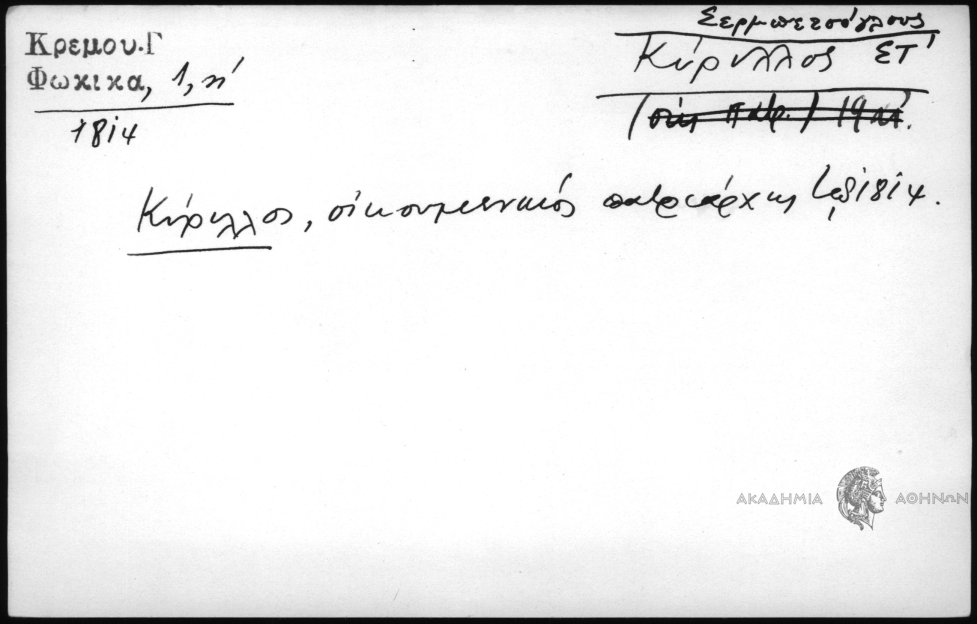 Κρεμου.Γ
Φωκικα, 1, η'
1814
Σερμπετσόγλους
Κύριλλος ΣΤ'
Κύριλλος, οἰκουμενικός πατριάρχης 1814.
ΑΚΑΔΗΜΙΑ ΑΘΗΝΩΝ